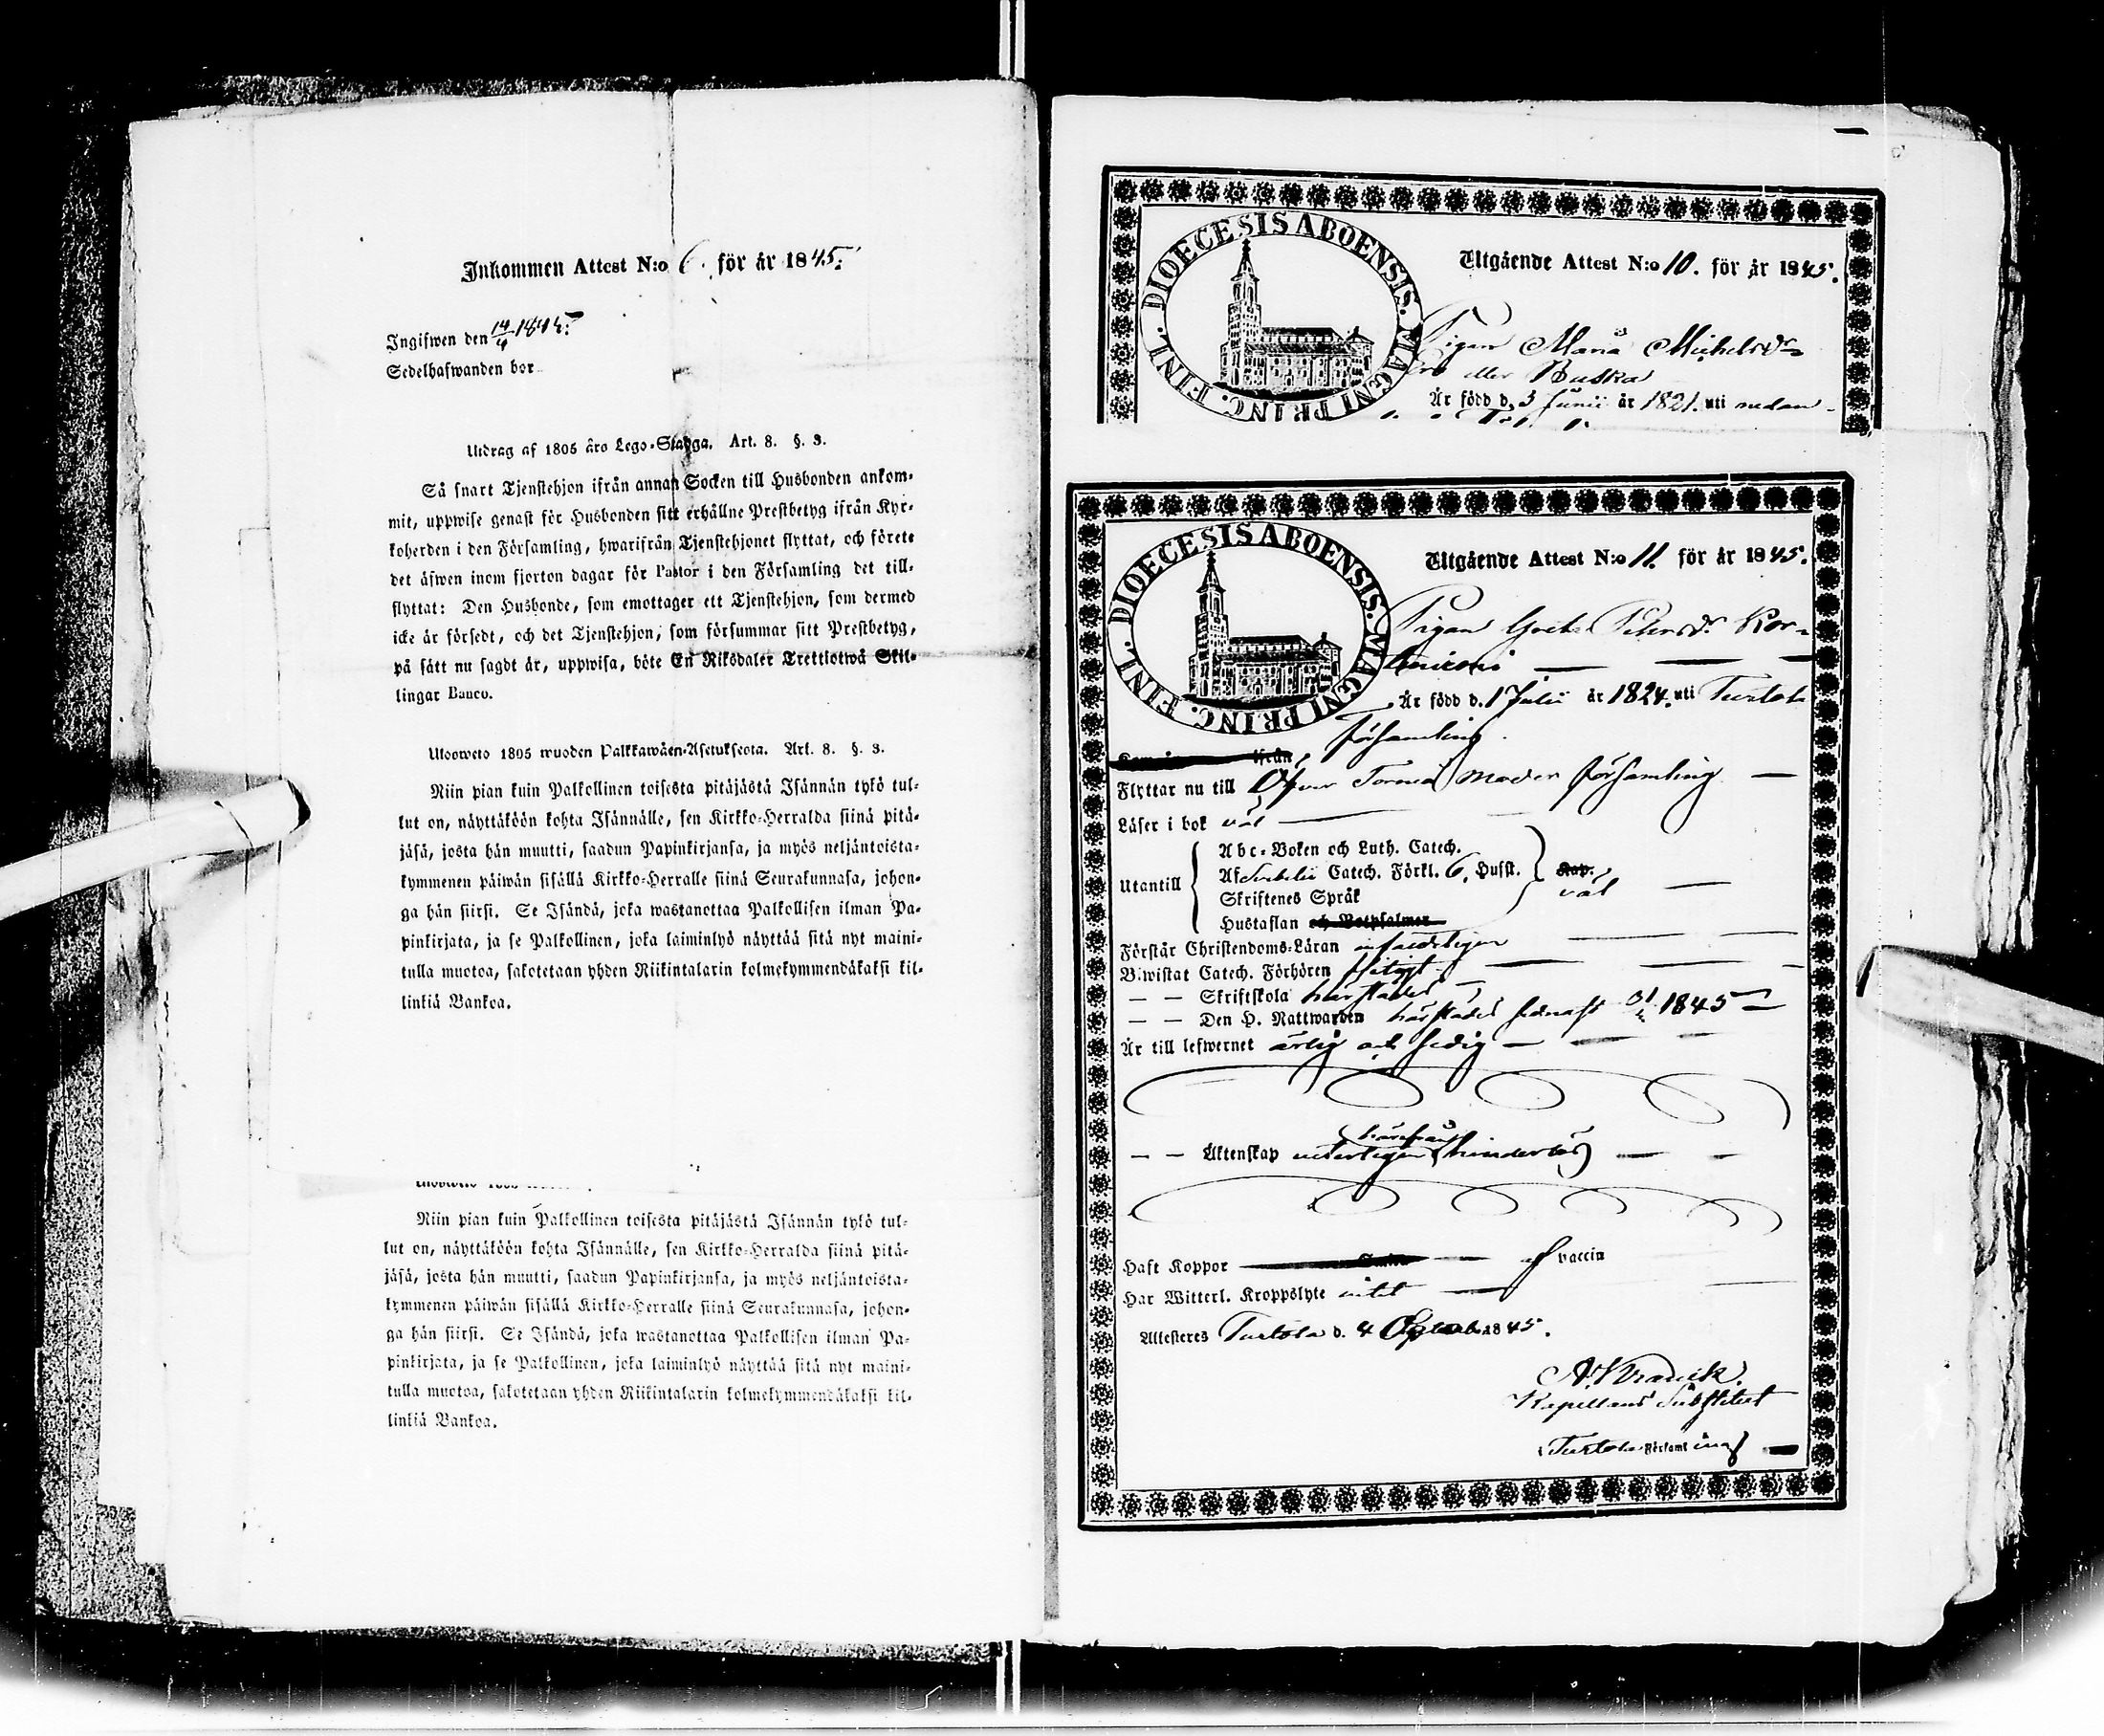 Inkommen Attest N:o 6. för år 1845.
Ingifwen den 14/4 1845.
Sedelhafwanden bor
Utdrag af 1805 års Lego-Stadga. Art. 8. §. 3.
Så snart Tjenstehjon ifrån annan Socken till Husbonden ankom-
mit, uppwise genast för Husbonden sitt erhållne Prestbetyg ifrån Kyr-
koherden i den Församling, hwarifrån Tjenstehjonet flyttat, och förete
det äfwen inom fjorton dagar för Pastor i den Församling det till-
flyttat: Den Husbonde, som emottager ett Tjenstehjon, som dermed
icke är försedt, och det Tjenstehjon, som försummar sitt Prestbetyg,
på sätt nu sagdt är, uppwisa, böte En Riksdaler Trettiotwå Skil-
lingar Banco.
Ulosweto 1805 wuoden Palkkawäen-Asetuksesta. Art. 8. §. 3.
Niin pian kuin Palkollinen toisesta pitäjästä Isännän tykö tul-
lut on, näyttäköön kohta Isännälle, sen Kirkko-Herralda siinä pitä-
jäsä, josta hän muutti, saadun Papinkirjansa, ja myös neljäntoista-
kymmenen päiwän sisällä Kirkko-Herralle siinä Seurakunnasa, johon-
ga hän siirsi. Se Isändä, joka wastanottaa Palkollisen ilman Pa-
pinkirjata, ja se Palkollinen, joka laiminlyö näyttää sitä nyt maini-
tulla muotoa, sakotetaan yhden Riikintalarin kolmekymmendäkaksi kil-
linkiä Bankoa.
Niin pian kuin Palkollinen toisesta pitäjästä Isännän tykö tul-
lut on, näyttäköön kohta Isännälle, sen Kirkko-Herralda siinä pitä-
jäsä, josta hän muutti, saadun Papinkirjansa, ja myös neljäntoista-
kymmenen päiwän sisällä Kirkko-Herralle siinä Seurakunnasa, johon-
ga hän siirsi. Se Isändä, joka wastanottaa Palkollisen ilman Pa-
pinkirjata, ja se Palkollinen, joka laiminlyö näyttää sitä nyt maini-
tulla muotoa, sakotetaan yhden Riikintalarin kolmekymmendäkaksi kil-
linkiä Bankoa.
DIOECESIS ABOENSIS. MAGNI PRINC. FINL.
Utgående Attest N:o 10. för år 1845.
Pigan Maria Michelsdr
eller Buska
Är född d. 3 Junii år 1821. uti nedan-
DIOECESIS ABOENSIS. MAGNI PRINC. FINL.
Utgående Attest N:o 11. för år 1845.
Pigan Greta Petersdr Kor-
Är född d. 1 Julii år 1824. uti Turtola
församling.
ifrån
Flyttar nu till Öfver Torneå Moder församling
Läser i bok väl
Utantill
Abc-Boken och Luth. Catech.
Af Svebelii Catech. Förkl. 6. Hufst.
Skriftenes Språk
Hustaflan och Botpsalmer
Kap.
väl
Förstår Christendoms-Läran
Biwistat Catech. Förhören flitigt
— — Skriftskola härstädes
— — Den H. Nattwarden härstädes sednast 1845
Är till lefwernet ärlig och sedig
— — Äktenskap härifrån hinderlös
Haft Koppor vaccin
Har Witterl. Kroppslyte intet
Attesteres Turtola d. 4 1845.
Kapellans Substitut
Turtola Församling